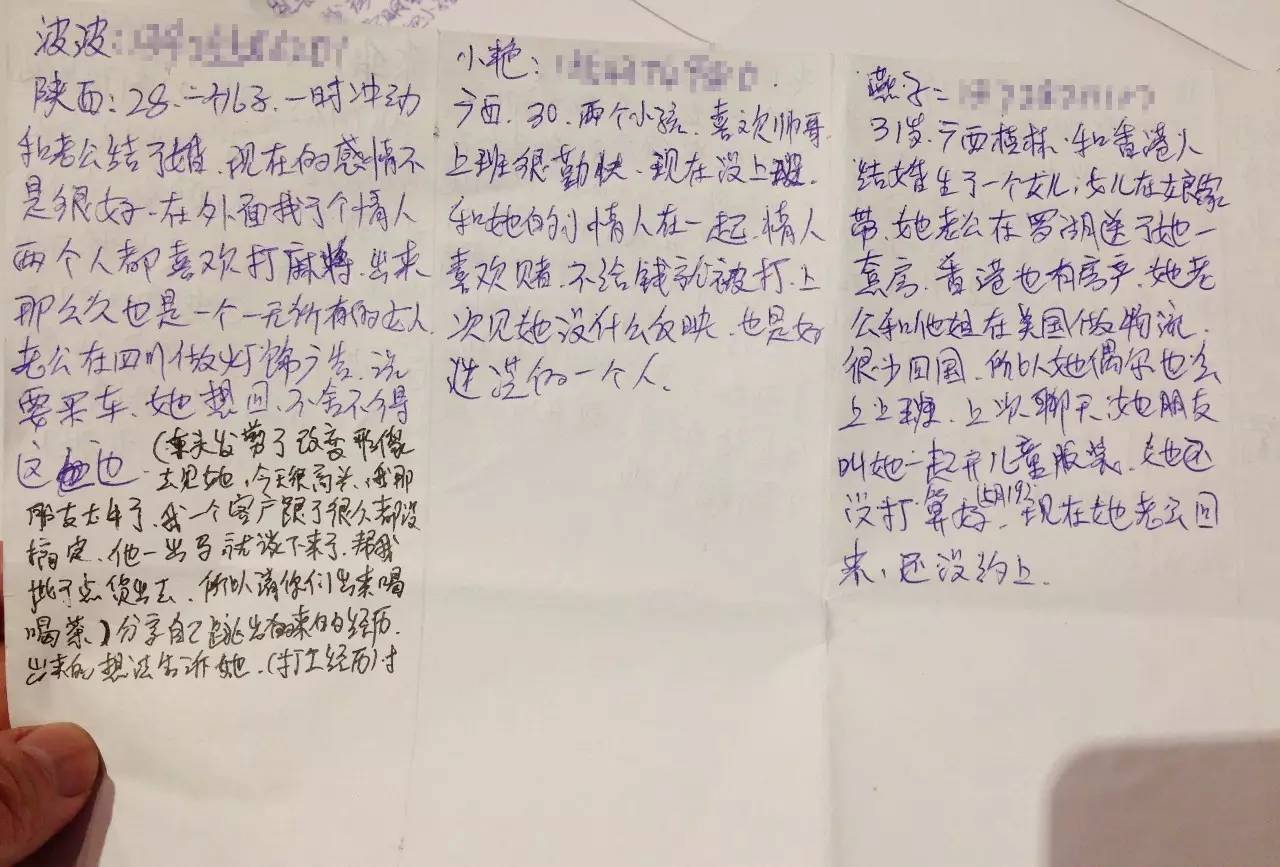 波波
陕西:28.一孩子.一时冲动
和老公结了婚.现在的感情不
是很好.在外面找了个情人
两个人都喜欢打麻将.出来
那么久也是一个一无所有的女人
老公在四川做灯饰广告.说
要买车.她想回.不舍不得
这边
(车头发剪了改变形像
去见她,今天很高兴,我那
朋友太牛了.我一个客户跟了很久都没
搞定.他一出马就谈下来了.帮我
批了点货出去.所以请你们出来喝
喝茶)分享自己跳出来的经历.
出来的想法告诉她.(打工经历)
小艳:
广西.30.两个小孩.喜欢帅哥
上班很勤快.现在没上班.
和她的情人在一起.情人
喜欢赌.不给钱就被打.上
次见她没什么反映.也是好
造活的一个人.
燕子:
31岁.广西桂林.和香港人
结婚生了一个女儿;女儿在娘家
带.她老公在罗湖送了她一
套房.香港也有房产.她老
公和他姐在美国做物流.
很少回国.所以她偶尔也会
上上班.上次聊天.她朋友
叫她一起开儿童服装.她还
没打算好.(5月19)现在她老公回
来,还没约上.